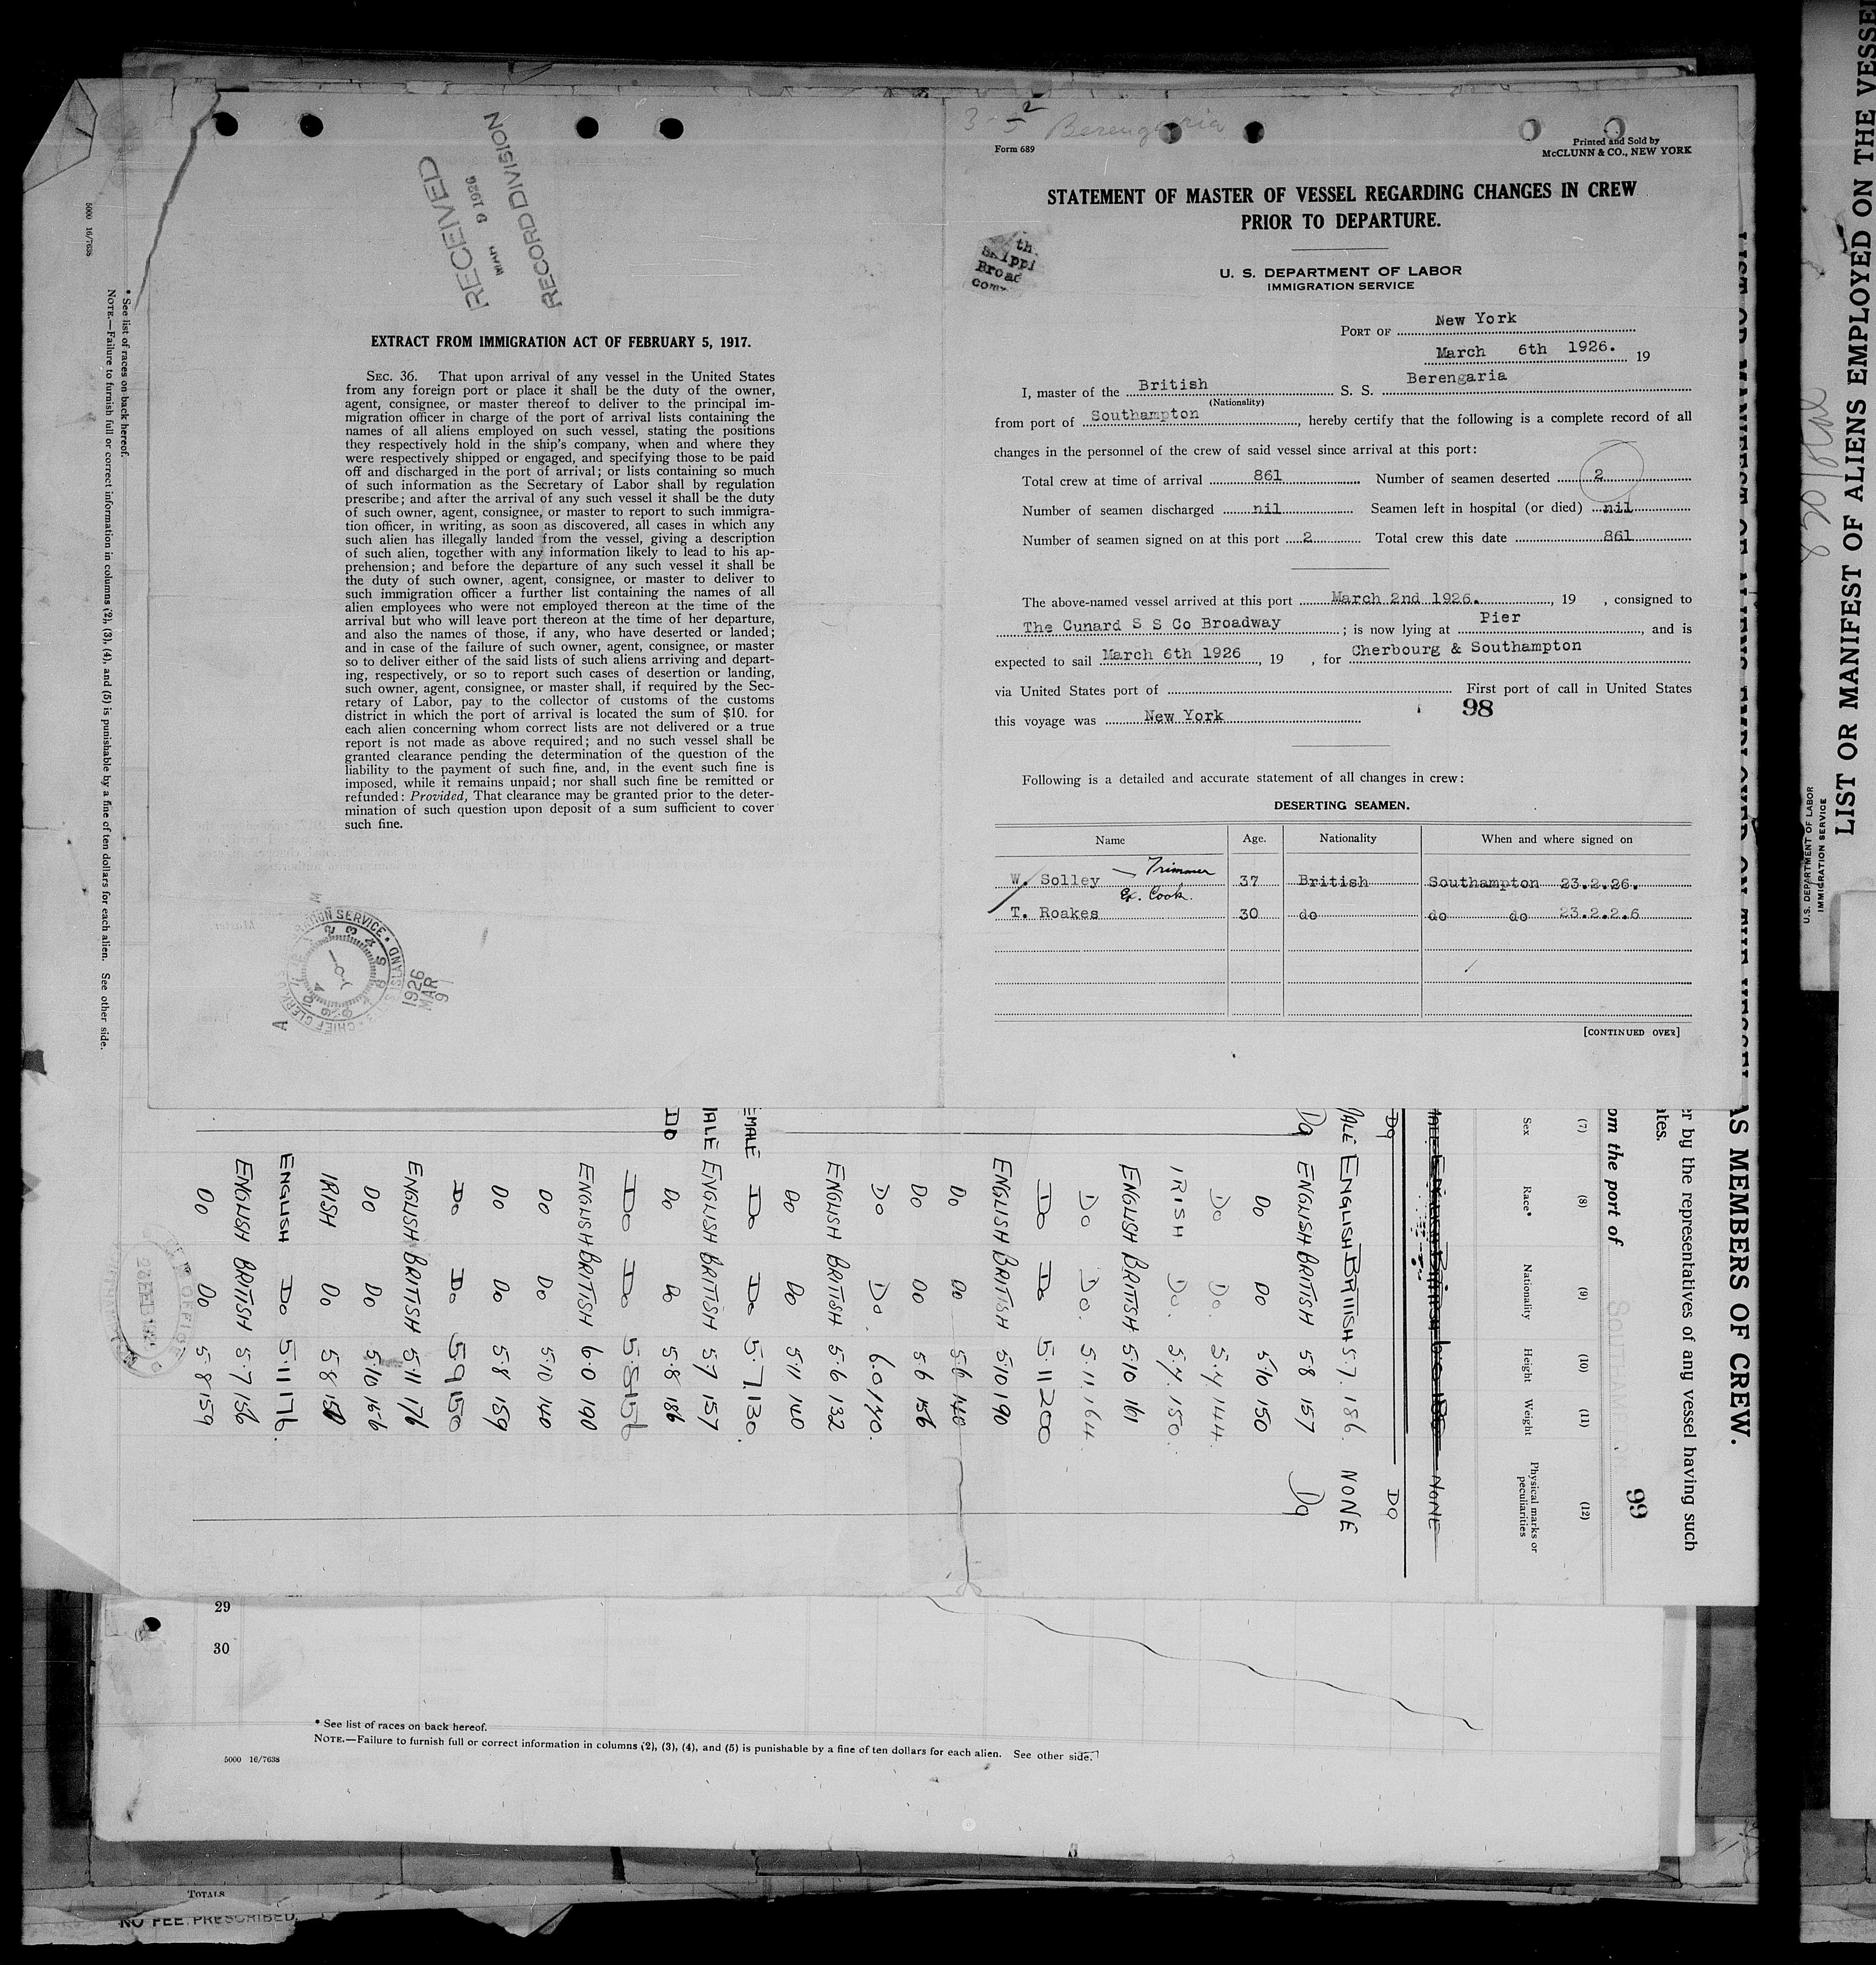 RECEIVED
MAR 9 1926
RECORD DIVISION
EXTRACT FROM IMMIGRATION ACT OF FEBRUARY 5, 1917.
SEC. 36. That upon arrival of any vessel in the United States
from any foreign port or place it shall be the duty of the owner,
agent, consignee, or master thereof to deliver to the principal im-
migration officer in charge of the port of arrival lists containing the
names of all aliens employed on such vessel, stating the positions
they respectively hold in the ship's company, when and where they
were respectively shipped or engaged, and specifying those to be paid
off and discharged in the port of arrival; or lists containing so much
of such information as the Secretary of Labor shall by regulation
prescribe; and after the arrival of any such vessel it shall be the duty
of such owner, agent, consignee, or master to report to such immigra-
tion officer, in writing, as soon as discovered, all cases in which any
such alien has illegally landed from the vessel, giving a description
of such alien, together with any information likely to lead to his ap-
prehension; and before the departure of any such vessel it shall be
the duty of such owner, agent, consignee, or master to deliver to
such immigration officer a further list containing the names of all
alien employees who were not employed thereon at the time of the
arrival but who will leave port thereon at the time of her departure,
and also the names of those, if any, who have deserted or landed;
and in case of the failure of such owner, agent, consignee, or master
so to deliver either of the said lists of such aliens arriving and depart-
ing, respectively, or so to report such cases of desertion or landing,
such owner, agent, consignee, or master shall, if required by the Sec-
retary of Labor, pay to the collector of customs of the customs
district in which the port of arrival is located the sum of $10. for
each alien concerning whom correct lists are not delivered or a true
report is not made as above required; and no such vessel shall be
granted clearance pending the determination of the question of the
liability to the payment of such fine, and, in the event such fine is
imposed, while it remains unpaid; nor shall such fine be remitted or
refunded: Provided, That clearance may be granted prior to the deter-
mination of such question upon deposit of a sum sufficient to cover
such fine.
1926
MAR
9
3-5 2 Berengaria
Form 689
Printed and Sold by
McCLUNN & CO., NEW YORK
STATEMENT OF MASTER OF VESSEL REGARDING CHANGES IN CREW
PRIOR TO DEPARTURE.
U. S. DEPARTMENT OF LABOR
IMMIGRATION SERVICE
PORT OF New York
March 6th 1926. 19
I, master of the British S. S. Berengaria
(Nationality)
from port of Southampton, hereby certify that the following is a complete record of all
changes in the personnel of the crew of said vessel since arrival at this port:
Total crew at time of arrival 861 Number of seamen deserted 2
Number of seamen discharged nil Seamen left in hospital (or died) nil
Number of seamen signed on at this port 2 Total crew this date 861
The above-named vessel arrived at this port March 2nd 1926., 19 , consigned to
The Cunard S S Co Broadway ; is now lying at Pier, and is
expected to sail March 6th 1926, 19 , for Cherbourg & Southampton
via United States port of First port of call in United States
this voyage was New York
98
Following is a detailed and accurate statement of all changes in crew:
DESERTING SEAMEN.
Name Age. Nationality When and where signed on
W. Solley — Trimmer 37 British Southampton 23.2.26.
T. Roakes Ex. Cook. 30 do do do 23.2.2.6
[CONTINUED OVER]
LIST OR MANIFEST OF ALIENS EMPLOYED ON THE VESSEL AS MEMBERS OF CREW.
er by the representatives of any vessel having such
ates.
om the port of SOUTHAMPTON
99
(7) (8) (9) (10) (11) (12)
Sex Race* Nationality Height Weight Physical marks or peculiarities
NONE
DO DO
MALE ENGLISH BRITISH 5.7. 186 NONE
Do ENGLISH BRITISH 5.8 157 Do
DO DO 5/10 150
DO DO. 5.4 144.
IRISH DO. 5.4. 150.
ENGLISH BRITISH 5.10 161
DO DO. 5.11. 164
DO DO 5.11 200
ENGLISH BRITISH 5.10 190
DO DO 5.6 140
DO DO 5.6 156
DO DO. 6.0 170.
ENGLISH BRITISH 5.6 132
DO DO 5.11 140
EMALE DO DO 5.7. 130.
ALE ENGLISH BRITISH 5.7 157
DO DO DO 5.8 186
DO DO 5.8 156
ENGLISH BRITISH 6.0 190
DO DO 5.10 140
DO DO 5.8 159
DO DO 5.9 150
ENGLISH BRITISH 5.11 176
DO DO 5.10 156
IRISH DO 5.8 150
ENGLISH DO 5.11 176.
ENGLISH BRITISH 5.7 156
DO DO 5.8 159
* See list of races on back hereof.
NOTE.—Failure to furnish full or correct information in columns (2), (3), (4), and (5) is punishable by a fine of ten dollars for each alien. See other side.
5000 16/7638
29
30
* See list of races on back hereof.
NOTE.—Failure to furnish full or correct information in columns (2), (3), (4), and (5) is punishable by a fine of ten dollars for each alien. See other side.
5000 16/7638
TOTALS
NO FEE PRESCRIBED.
U.S. DEPARTMENT OF LABOR
IMMIGRATION SERVICE
LIST OR MANIFEST OF ALIENS EMPLOYED ON THE VESSEL